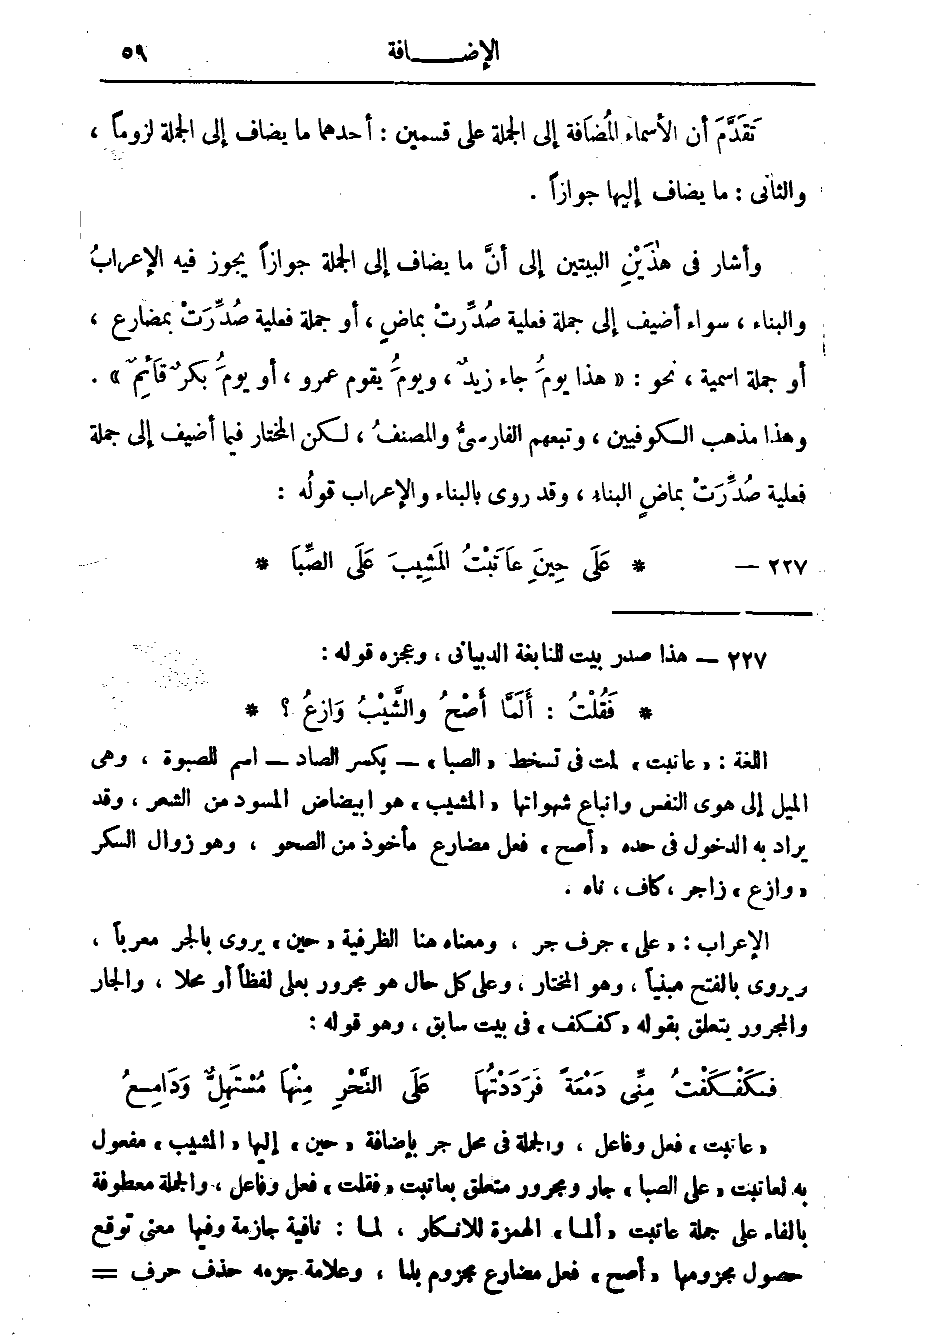 الإضافة ٥٩
تَقَدَّمَ أن الأسماء المُضَافة إلى الجملة على قسمين : أحدهما ما يضاف إلى الجملة لزوماً ،
والثانى : ما يضاف إليها جوازاً .
وأشار فى هٰذَيْنِ البيتين إلى أنَّ ما يضاف إلى الجملة جوازاً يجوز فيه الإعرابُ
والبناء ، سواء أضيف إلى جملة فعلية صُدِّرتْ بماضٍ ، أو جملة فعلية صُدِّرَتْ بمضارع ،
أو جملة اسمية ، نحو : « هذا يومُ جاء زيدٌ ، ويومُ يقوم عمرو ، أو يومُ بكرٌ قائمٌ » .
وهذا مذهب الكوفيين ، وتبعهم الفارسىُّ والمصنفُ ، لكن المختار فيما أضيف إلى جملة
فعلية صُدِّرَتْ بماضٍ البناء ، وقد روى بالبناء والإعراب قولُه :
٢٢٧ — * عَلَى حِينَِ عَاتَبْتُ المَشِيبَ عَلَى الصِّبَا *
٢٢٧ — هذا صدر بيت للنابغة الذبيانى ، وعجزه قوله :
* فَقُلْتُ : أَلَمَّا أَصْحُ والشَّيْبُ وَازِعُ ؟ *
اللغة : « عاتبت » لمت فى تسخط « الصبا » — بكسر الصاد — اسم للصبوة ، وهى
الميل إلى هوى النفس واتباع شهواتها « المشيب » هو ابيضاض المسود من الشعر ، وقد
يراد به الدخول فى حده « أصح » فعل مضارع مأخوذ من الصحو ، وهو زوال السكر
« وازع » زاجر ، كاف ، ناه .
الإعراب : « على » حرف جر ، ومعناه هنا الظرفية « حين » يروى بالجر معرباً ،
ويروى بالفتح مبنياً ، وهو المختار ، وعلى كل حال هو مجرور بعلى لفظاً أو محلا ، والجار
والمجرور يتعلق بقوله « كفكف » فى بيت سابق ، وهو قوله :
فَكَفْكَفْتُ مِنِّى دَمْعَةً فَرَدَدْتُهَا عَلَى النَّحْرِ مِنْهَا مُسْتَهِلٌّ وَدَامِعُ
« عاتبت » فعل وفاعل ، والجملة فى محل جر بإضافة « حين » إليها « المشيب » مفعول
به لعاتبت « على الصبا » جار ومجرور متعلق بعاتبت « فقلت » فعل وفاعل ، والجملة معطوفة
بالفاء على جملة عاتبت « ألما » الهمزة للانكار ، لما : نافية جازمة وفيها معنى توقع
حصول مجزومها « أصح » فعل مضارع مجزوم بلما ، وعلامة جزمه حذف حرف =